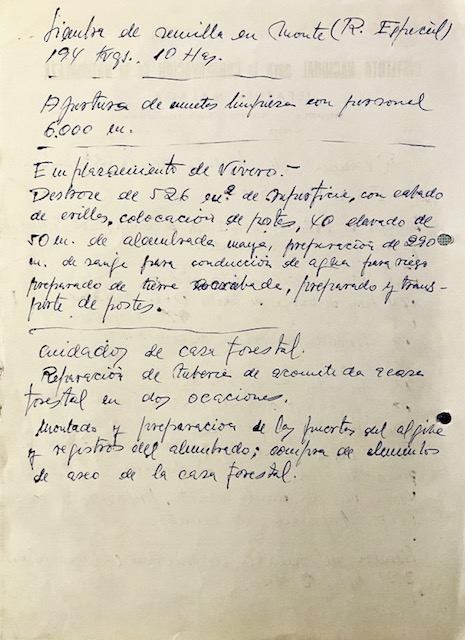 Siembra de semilla en monte (R. Especial)
194 Kgs.. 10 Has.
Apertura de limpieza con personal
6.000 m.
Emplazamiento de Vivero.-
Destroze de 526 m² de superficie, con cabado
de orillas, colocación de postes, y clavado de
50 m. de alambrada maya, preparación de 290
m. de zanja para conducción de agua para riego
preparado de tierra, preparado y trans-
porte de postes.
Cuidados de casa forestal.
Reparación de tuberia de acometida a casa
forestal en dos ocaciones.
Montado y preparación de las puertas del algibe
y registros del alumbrado; compra de elementos
de aseo de la casa forestal.